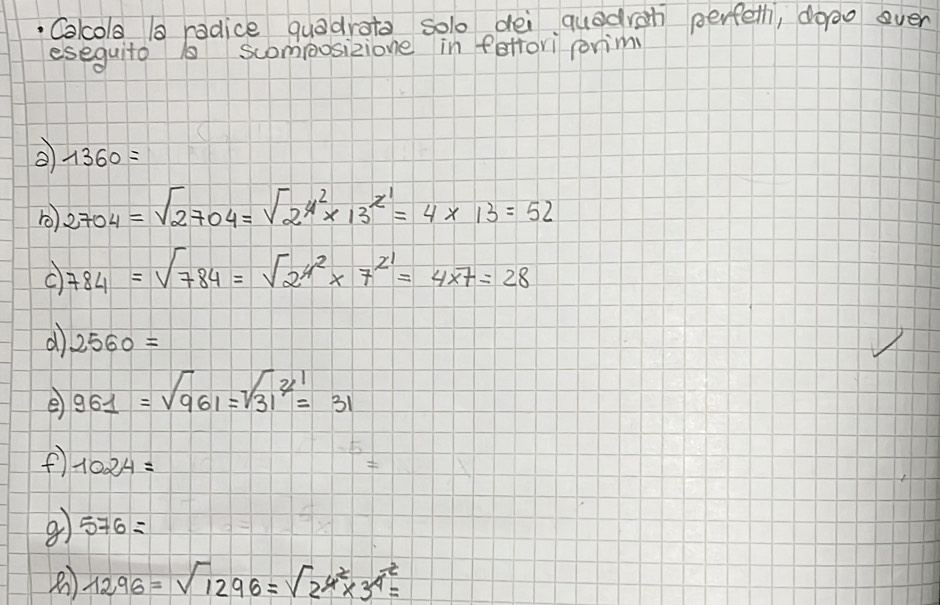 • Calcola la radice quadrata solo dei quadrati perfetti, dopo aver
eseguito la scomposizione in fattori primi
a) 1360 =
b) 2704 = √2704 = √2⁴² × 13²¹ = 4 × 13 = 52
c) 784 = √784 = √2⁴² × 7²¹ = 4×7 = 28
d) 2560 =
e) 961 = √961 = √31²¹ = 31
f) 1024 =
g) 576 =
h) 1296 = √1296 = √2⁴² × 3⁴² =